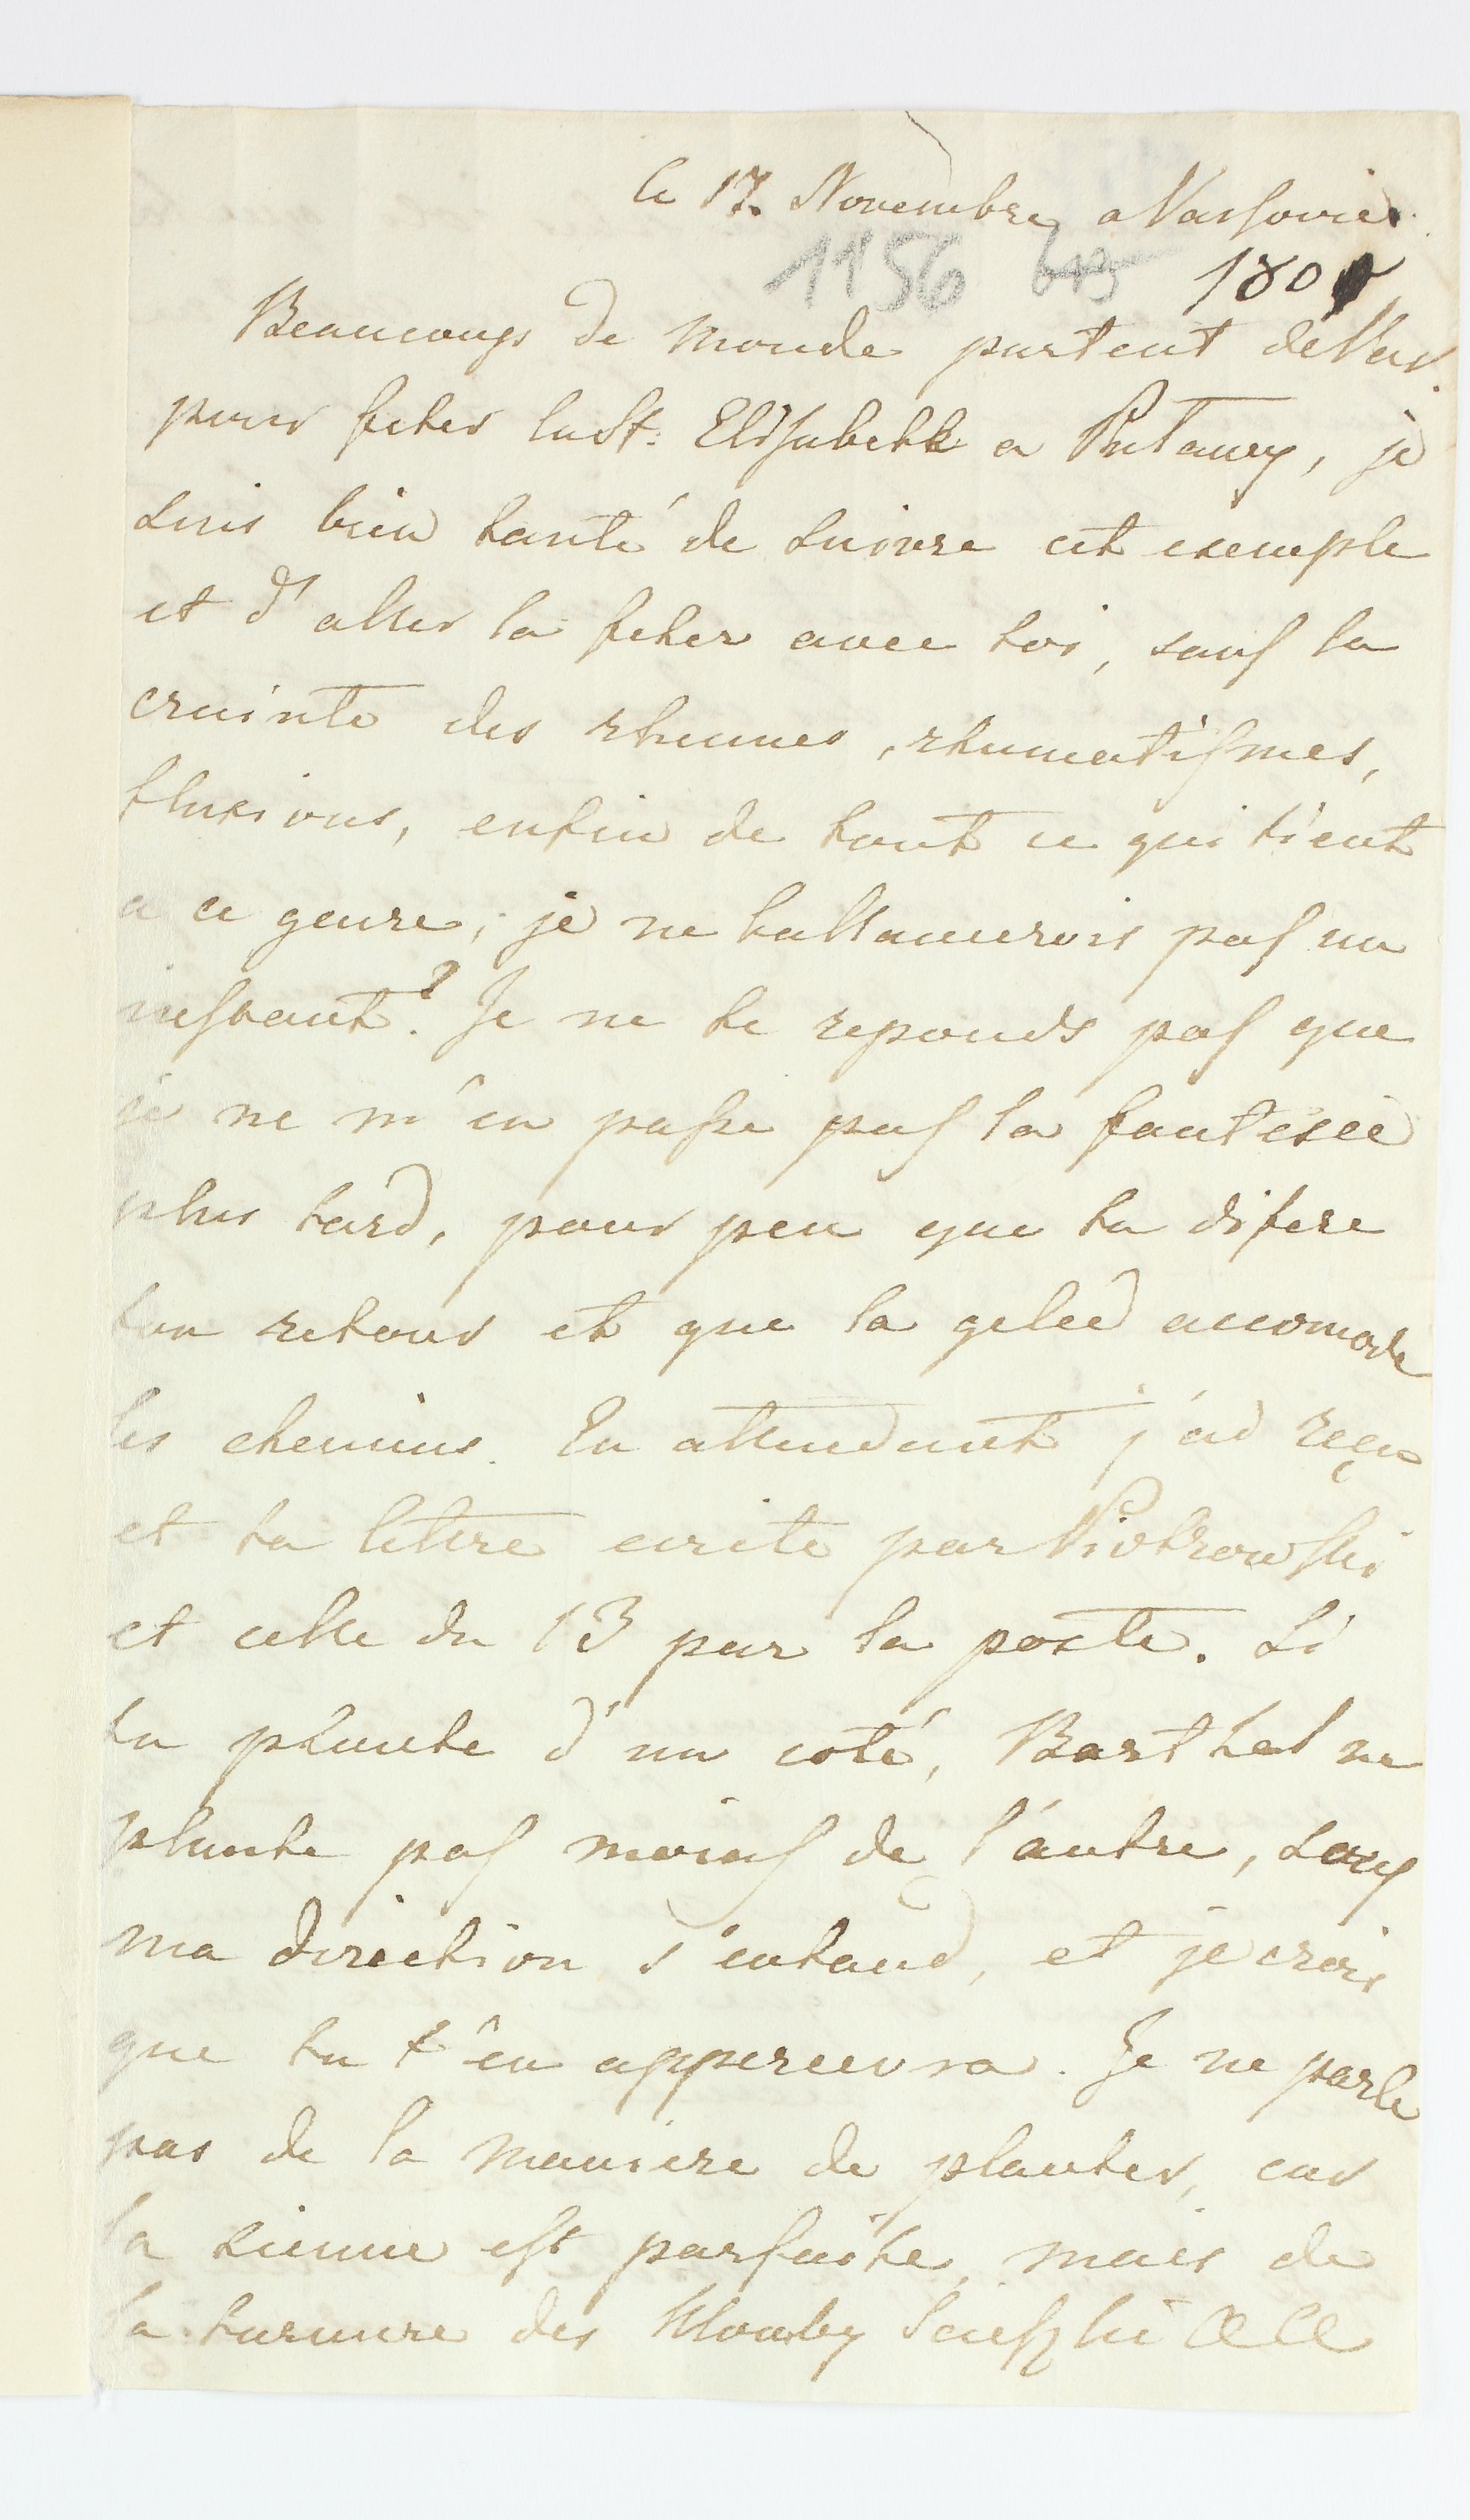 ce 17. Novembre a Varsovie.
1156 180
Beaucoups de monde partent de Var.
pour feter la St. Elisabeth a Pulawy, je
suis bien tanté de suivre cet exemple
et d'aller la feter avec toi, sauf la
crainte des rhumes, rhumatismes,
fluxions, enfin de tout ce qui tient
a ce genre, je ne ballancerois pas un
instant? Je ne te reponds pas que
je ne m'en passe pas la fantesie
plus tard, pour peu que tu difere
ton retour et que la gelée accomode
les chemins. En attendant j'ai reçu
et ta lettre ecrite par Piotrowski
et celle du 13 par la poste. Si
tu plante d'un coté, Barthel ne
plante pas moins de l'autre, sous
ma direction s'entand, et je crois
que tu t'en appercevra. Je ne parle
pas de la maniere de planter, car
la sienne est parfaite, mais de
la turnure des Klomby